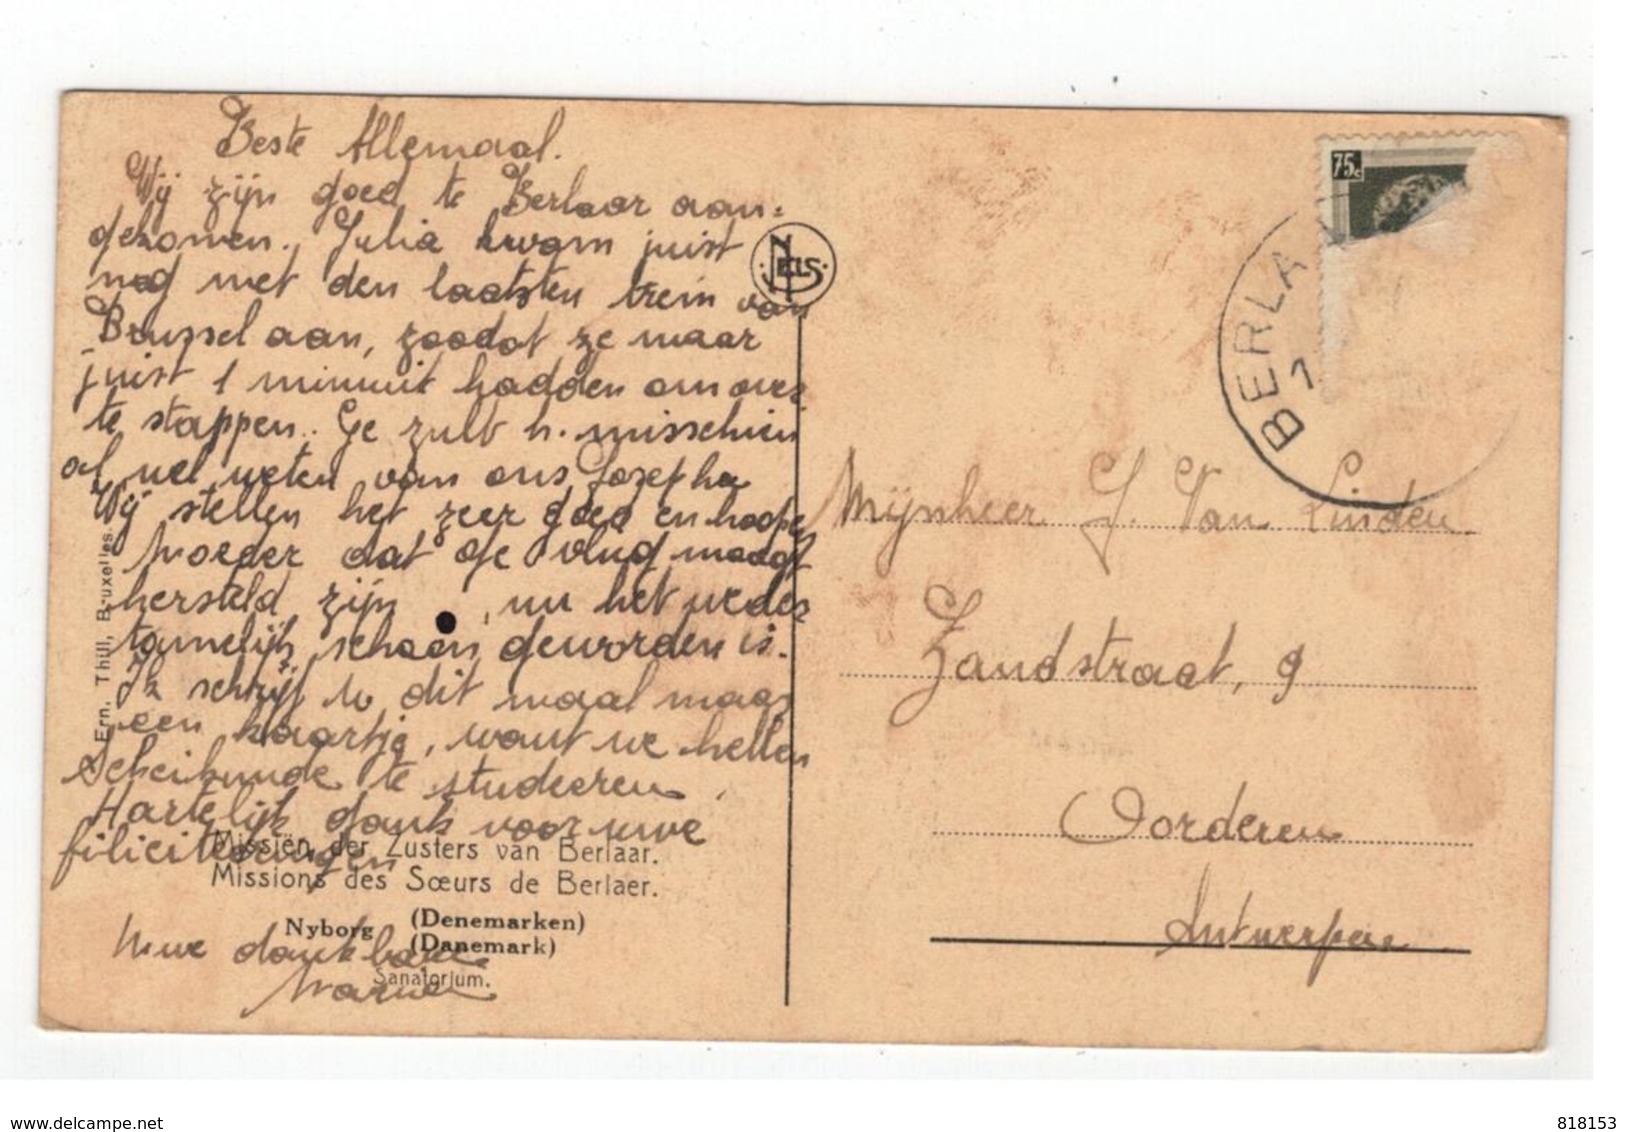 Beste Allemaal.
Wij zijn goed te Berlaar aan=
gekomen. Julia kwam juist
nog met den laatsten trein van
Brussel aan, zoodat ze maar
juist 1 minuut hadden om over
te stappen. Ge zult h. misschien
al wel weten van ons Jozepha
Wij stellen het zeer goed en hoope
Moeder dat ge vlug moogt
hersteld zijn , nu het weder
tamelijk schoon geworden is.
Ik schrijf u dit maal maar
een kaartje, want we hellen
Scheikunde te studeeren.
Hartelijk dank voor uwe
filicitatiengen
Uwe dankbare
NELS
Ern. Thill, Bruxelles.
Missiën der Zusters van Berlaar.
Missions des Sœurs de Berlaer.
Nyborg (Denemarken)
(Danemark)
Sanatorium.
75c
BERLA
1
Mijnheer J. Van Linden
Zandstraat, 9
Oorderen
Antwerpen
delcampe.net
818153